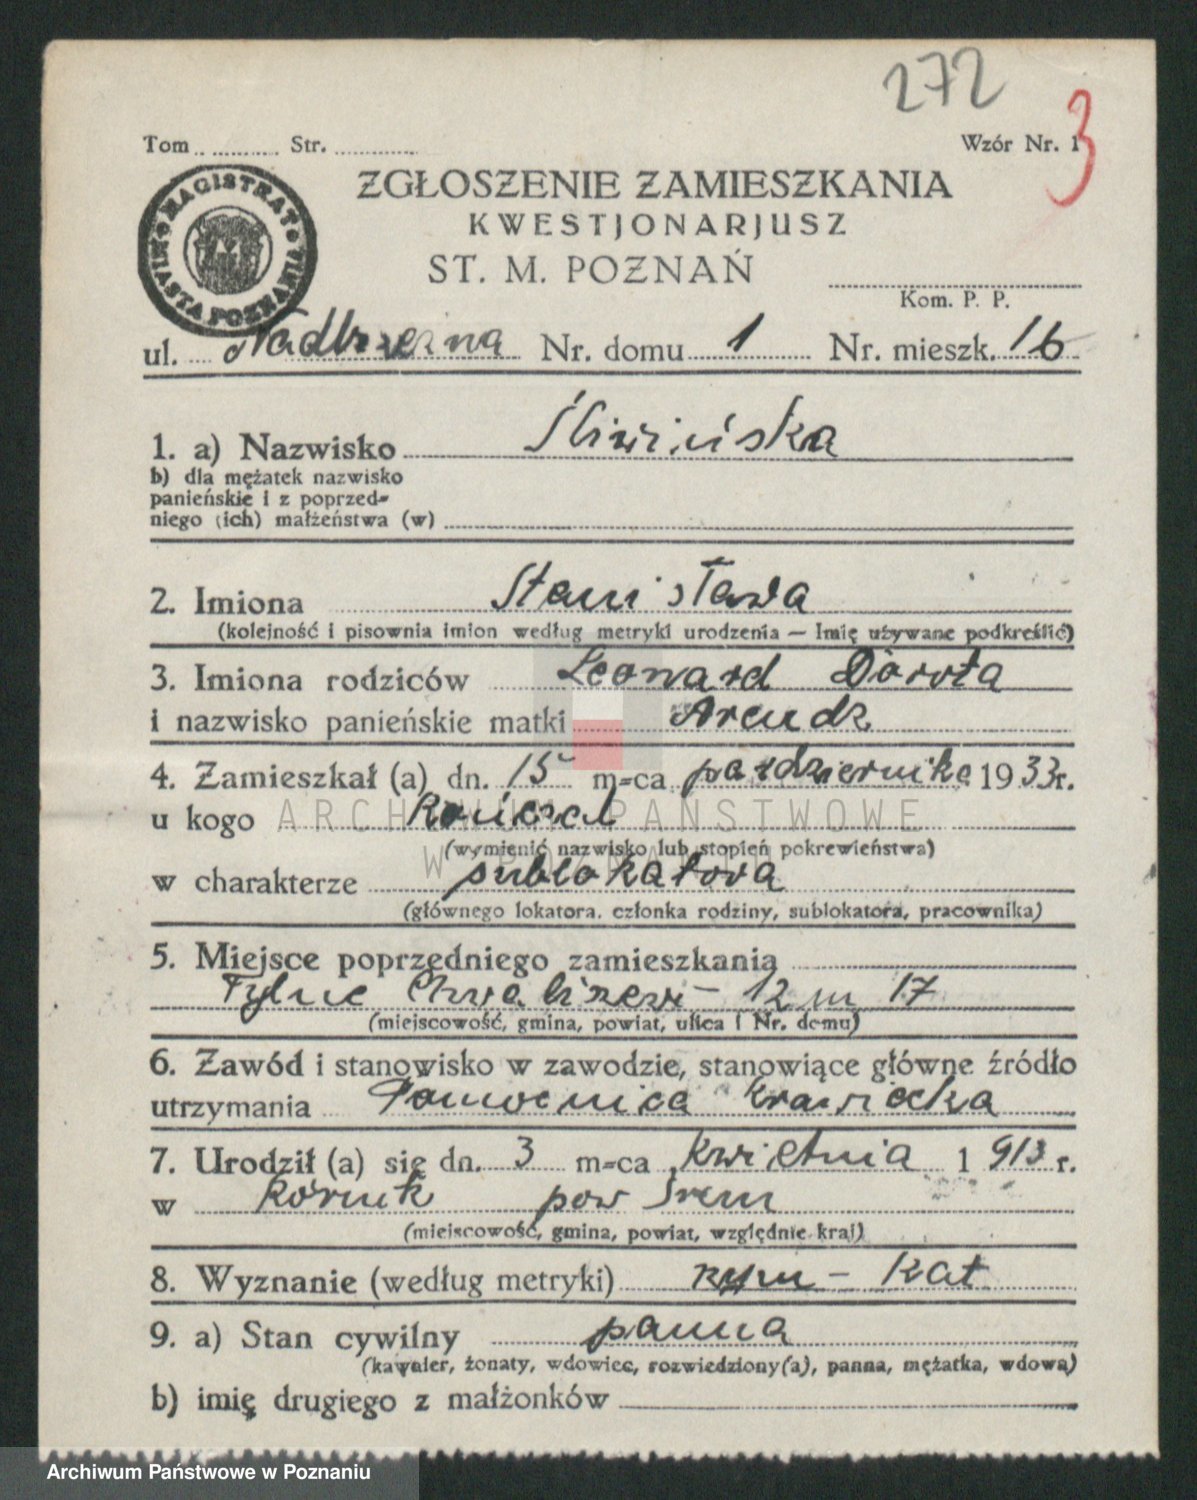 272
3
Tom ............ Str. ............ Wzór Nr. 1
MAGISTRAT MIASTA POZNANIA
ZGŁOSZENIE ZAMIESZKANIA
KWESTJONARJUSZ
ST. M. POZNAŃ
Kom. P. P.
ul. Nadbrzeżna Nr. domu 1 Nr. mieszk. 16
1. a) Nazwisko Śliwińska
b) dla mężatek nazwisko
panieńskie i z poprzed-
niego (ich) małżeństwa (w)
2. Imiona Stanisława
(kolejność i pisownia imion według metryki urodzenia — Imię używane podkreślić)
3. Imiona rodziców Leonard Dorota
i nazwisko panieńskie matki Arendz
4. Zamieszkał (a) dn. 15 m-ca października 1933 r.
u kogo
(wymienić nazwisko lub stopień pokrewieństwa)
w charakterze sublokatora
(głównego lokatora, członka rodziny, sublokatora, pracownika)
ARCHIWUM PAŃSTWOWE
W POZNANIU
5. Miejsce poprzedniego zamieszkania
Tylne Chwaliszewo 12 m 17
(miejscowość, gmina, powiat, ulica i Nr. domu)
6. Zawód i stanowisko w zawodzie, stanowiące główne źródło
utrzymania Pomocnica krawiecka
7. Urodził (a) się dn. 3 m-ca kwietnia 1913 r.
w Kórnik pow Śrem
(miejscowość, gmina, powiat, względnie kraj)
8. Wyznanie (według metryki) rzym - kat
9. a) Stan cywilny panna
(kawaler, żonaty, wdowiec, rozwiedziony(a), panna, mężatka, wdowa)
b) imię drugiego z małżonków
Archiwum Państwowe w Poznaniu